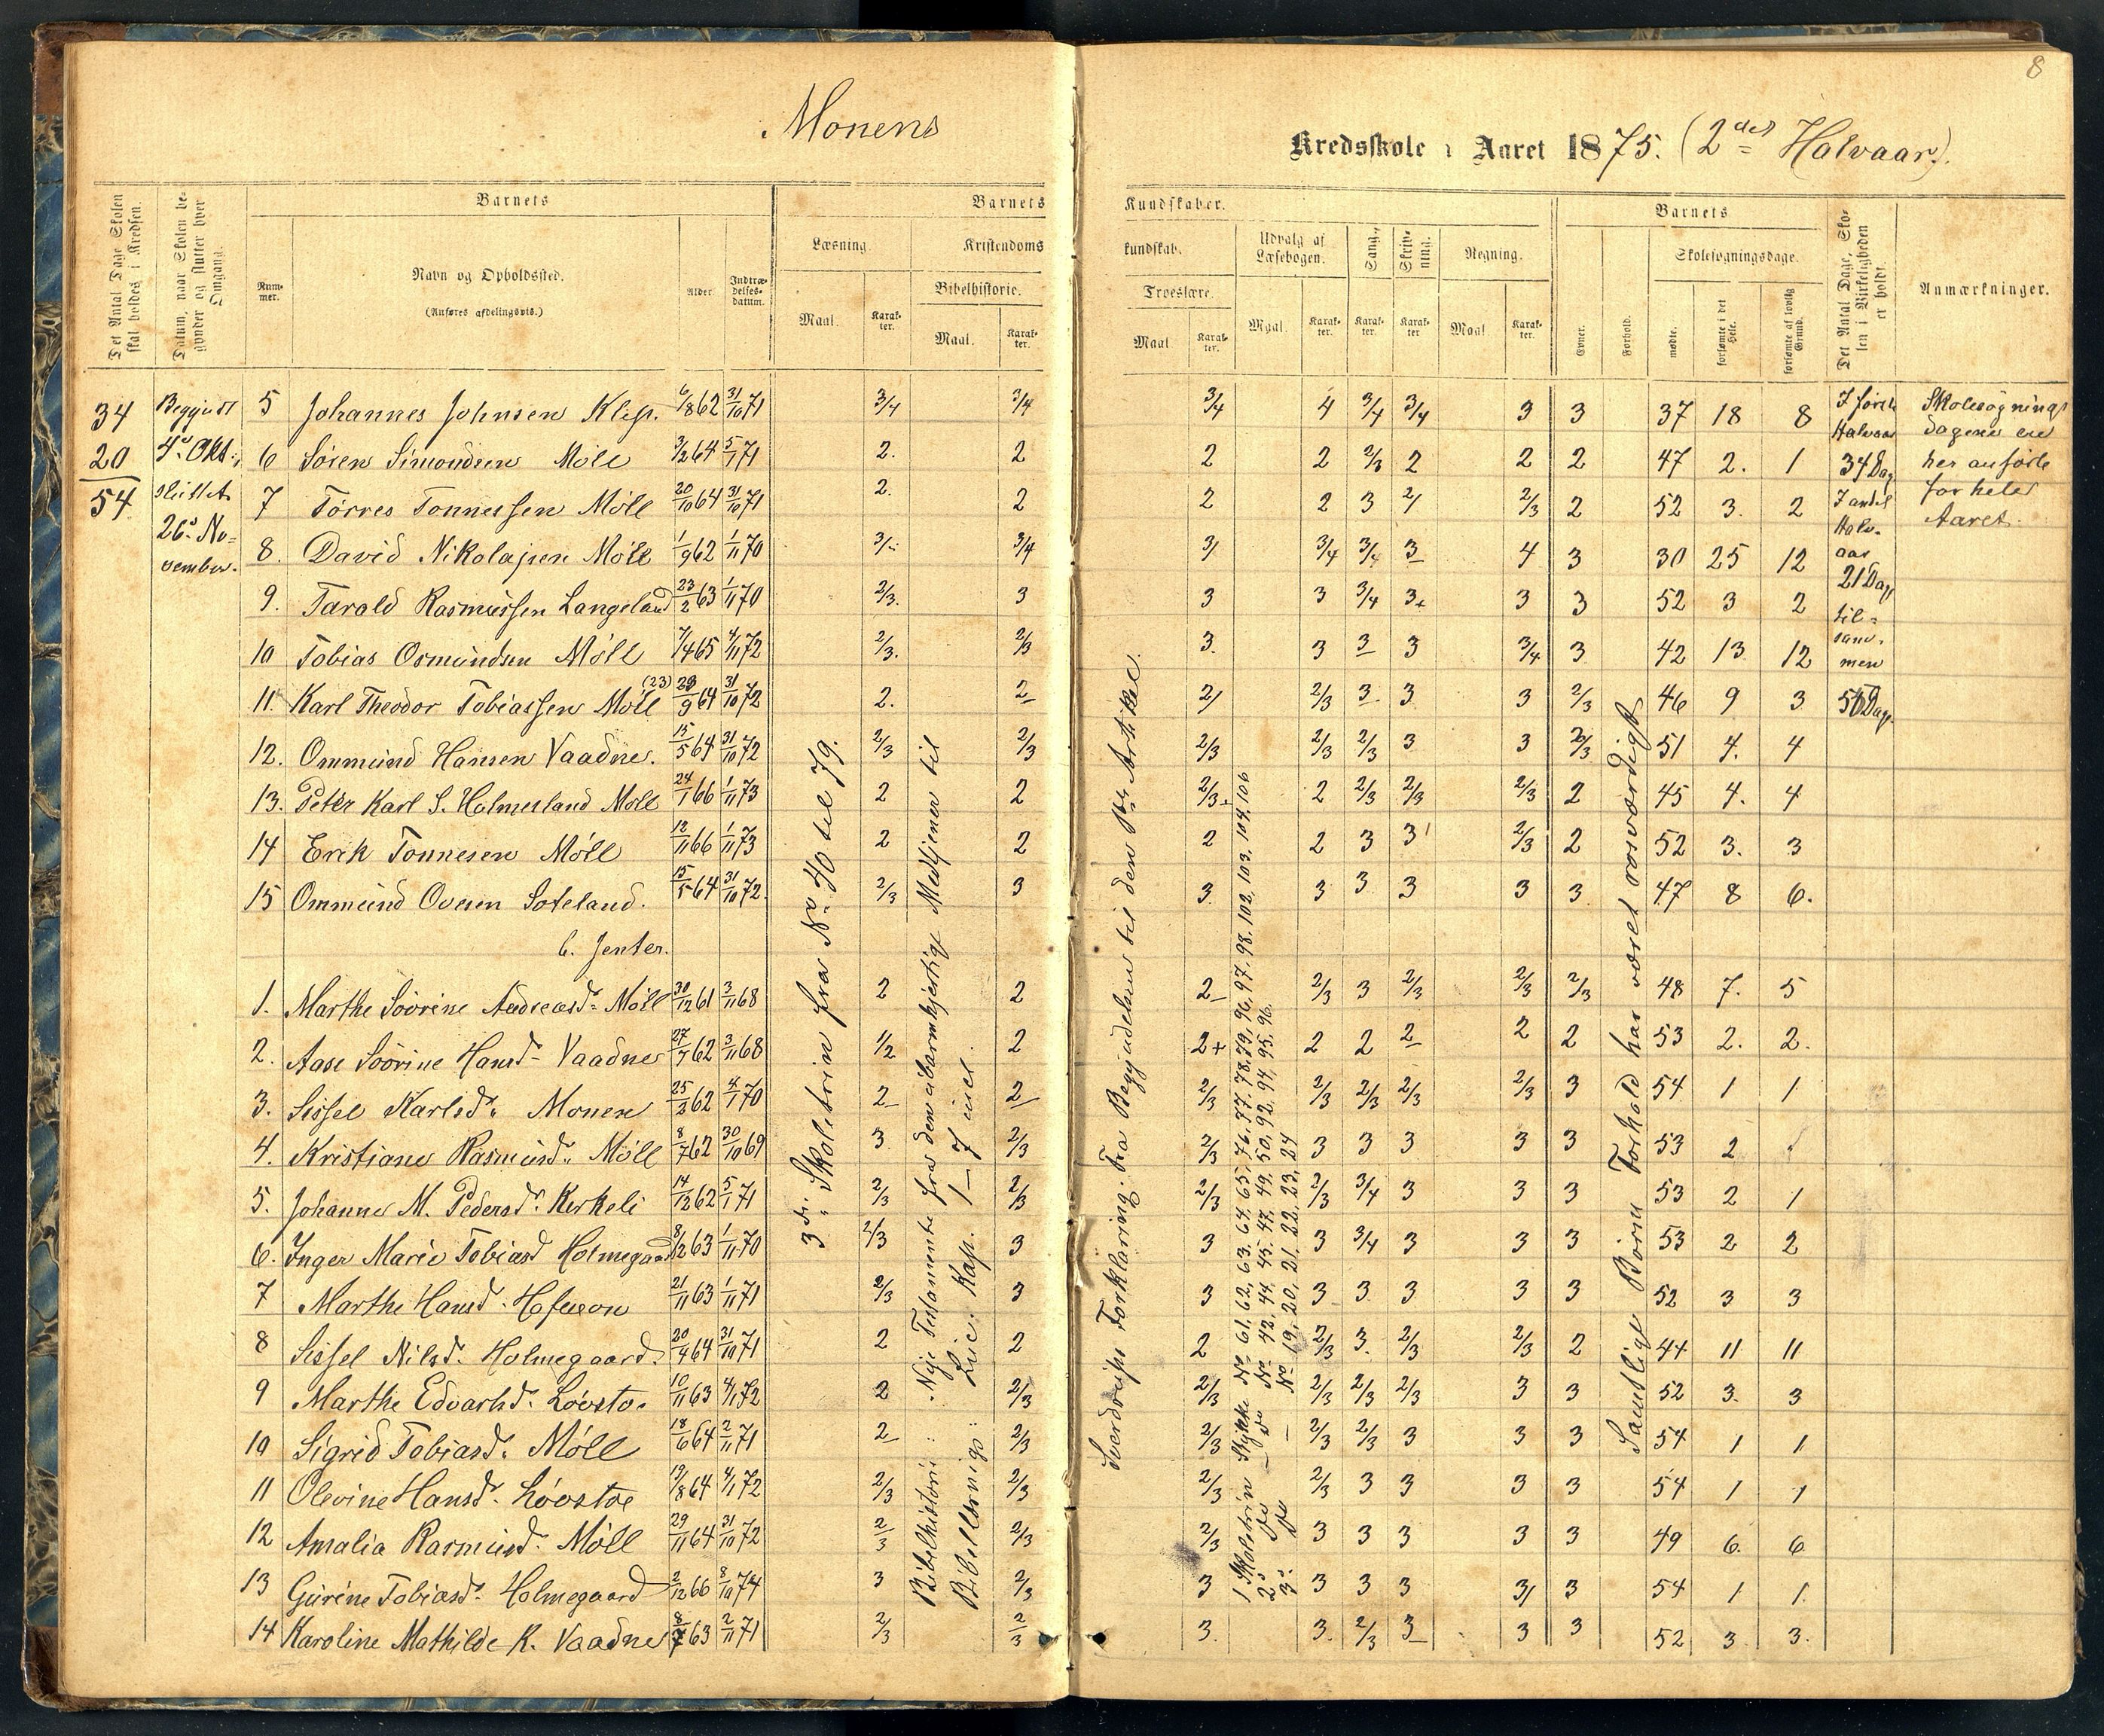 8
Monens
Kredsskole i Aaret 1875. (2det Halvaar).
Det Antal Dage Skolen skal holdes i Kredsen.
Datum, naar Skolen begynder og slutter hver Omgang.
Barnets
Nummer.
Navn og Opholdssted.
(Anføres afdelingsvis.)
Alder.
Indtrædelsesdatum.
Barnets
Læsning.
Maal.
Karakter.
Kristendoms
Bibelhistorie.
Maal.
Karakter.
Kundskaber.
kundskab.
Troeslære.
Maal
Karakter.
Udvalg af Læsebogen.
Maal.
Karakter.
Sang.
Karakter.
Skrivning.
Karakter.
Regning.
Maal
Karakter.
Barnets
Evner.
Forhold.
Skolesøgningsdage.
mødte.
forsømte i det Hele.
forsømte af lovlig Grund.
Det Antal Dage, Skolen i Virkeligheden er holdt.
Anmærkninger.
34
20
54
Begyndt
4de Okt.,
sluttet
26de No=
vember.
5 Johannes Johnsen Klep. 6/8 62 31/10 71 3/4 3/4 3/4 4 3/4 3/4 3 3 37 18 8
6 Sören Simondsen Möll 3/2 64 5/1 71 2. 2 2 2 2/3 2 2 2 47 2. 1
7 Törres Tönnessen Möll 20/10 64 31/10 71 2. 2 2 2 3 2/ 2/3 2 52 3. 2
8. David Nikolajsen Möll 1/9 62 1/11 70 3/4 3/ 3/4 3/4 3 4 3 30 25 12
9. Tarald Rasmussen Langeland 23/2 63 1/11 70 2/3. 3 3 3 3/4 3+ 3 3 52 3 2
10 Tobias Osmundsen Möll 7/4 65 4/11 72 2/3. 2/3 3. 3 3 3 3/4 3 42 13 12
11. Karl Theodor Tobiassen Möll (23) 29/9 64 31/10 72 2. 2 2/ 2/3 3 3 3 2/3 46 9 3
12. Ommund Hansen Vaadne. 15/5 64 31/10 72 2/3 2/3 2/3 2/3 2/3 3 3 2/3 51 4. 4
13. Peter Karl S. Holmesland Möll 24/1 66 1/11 73 2 2 2/3 2 2/3 2/3 2/3 2 45 4. 4
14 Erik Tönnesen Möll 12/11 66 1/11 73 2 2 2 2 3 3 2/3 2 52 3. 3
15 Ommund Ovesen Soteland. 15/5 64 31/10 72. 2/3 3 3. 3 3 3 3 3 47 8 6.
b. Jenter.
1. Marthe Sövrine Andreasd. Möll 30/12 61 3/11 68 2 2 2- 2/3 3 2/3 2/3 2/3 48 7. 5
2. Aase Sövrine Hansd. Vaadne 27/7 62 3/11 68 1/2 2 2+ 2 2 2- 2 2 53 2. 2.
3. Sissel Karlsd. Monen 25/2 62 4/1 70 2- 2- 2/3 2/3 2/3 2/3 2/3 3 54 1 1
4. Kristiane Rasmusd. Möll 8/7 62 30/10 69 3. 2/3 2/3 3 3 3 3 3 53 2
5. Johanne M. Pedersd. Kirkeli 14/12 62 5/1 71 2/3 2/3 2/3 2/3 3/4 3 3 3 53 2 1
6. Inger Marie Tobiasd Holmegaard 8/12 63 1/11 70 2/3 3 3 3 3/4 3 3 3 53 2 2
7 Marthe Hansd. 21/11 63 1/11 71 2/3 3 3 3 3 3 3 3 52 3 3
8 Sissel Nilsd. Holmegaard. 20/4 64 31/10 71 2 2 2 2/3 3. 2/3 2/3 2 44 11 11
9 Marthe Edvartsd. Lövstø. 10/11 63 4/1 72 2 2/3 2/3 2/3 2/3 2/3 3 3 52 3. 3
10 Sigrid Tobiasd. Möll 18/6 64 2/11 71 2- 2/3 2/3 2/3 2/3 3 3 3 54 1 1
11 Olevine Hansd. Lövstøe 19/8 64 4/1 72 2/3 2/3 2/3 2/3 3 3 3 3 54 1 1
12 Amalia Rasmusd. Möll 29/11 64 31/10 72 2/3 2/3 2/3 3 3 3 3 3 49 6. 6
13 Gurine Tobiasd. Holmegaard 2/12 66 8/10 74 3 2/3 3 3 3 3 3/ 3 54 1 1.
14 Karoline Mathilde K. Vaadne 8/7 63 2/11 71 2/3 2/3 3. 3. 2/3 3 3 3 52 3 3.
3die Skoletrin fra No. 40 til 79.
Bibelhistorie: Nye Testamente fra den ubarmhjertige Medtjener til
Bibellæsning: Luc. Kap. 1-7 incl.
Sverdrups Forklaring. Fra Begyndelsen til den Artikel.
1 Skoletrin Stykke No. 61, 62, 63, 64, 65, 76, 77, 78, 79, 96, 97, 98, 102, 103, 104, 106
2. do - do No. 42, 44, 45, 47, 49, 50, 92, 94, 95, 96.
3. do - No. 19, 20, 21, 22, 23, 24
Samtlige Börns Forhold har været rosværdigt
I förste
Halvaar
34 Dag
I andet
Halv-
aar
21 Dag
til=
sam-
men
Dage
Skolesøgnings
dagene ere
her anförte
for hele
Aaret.